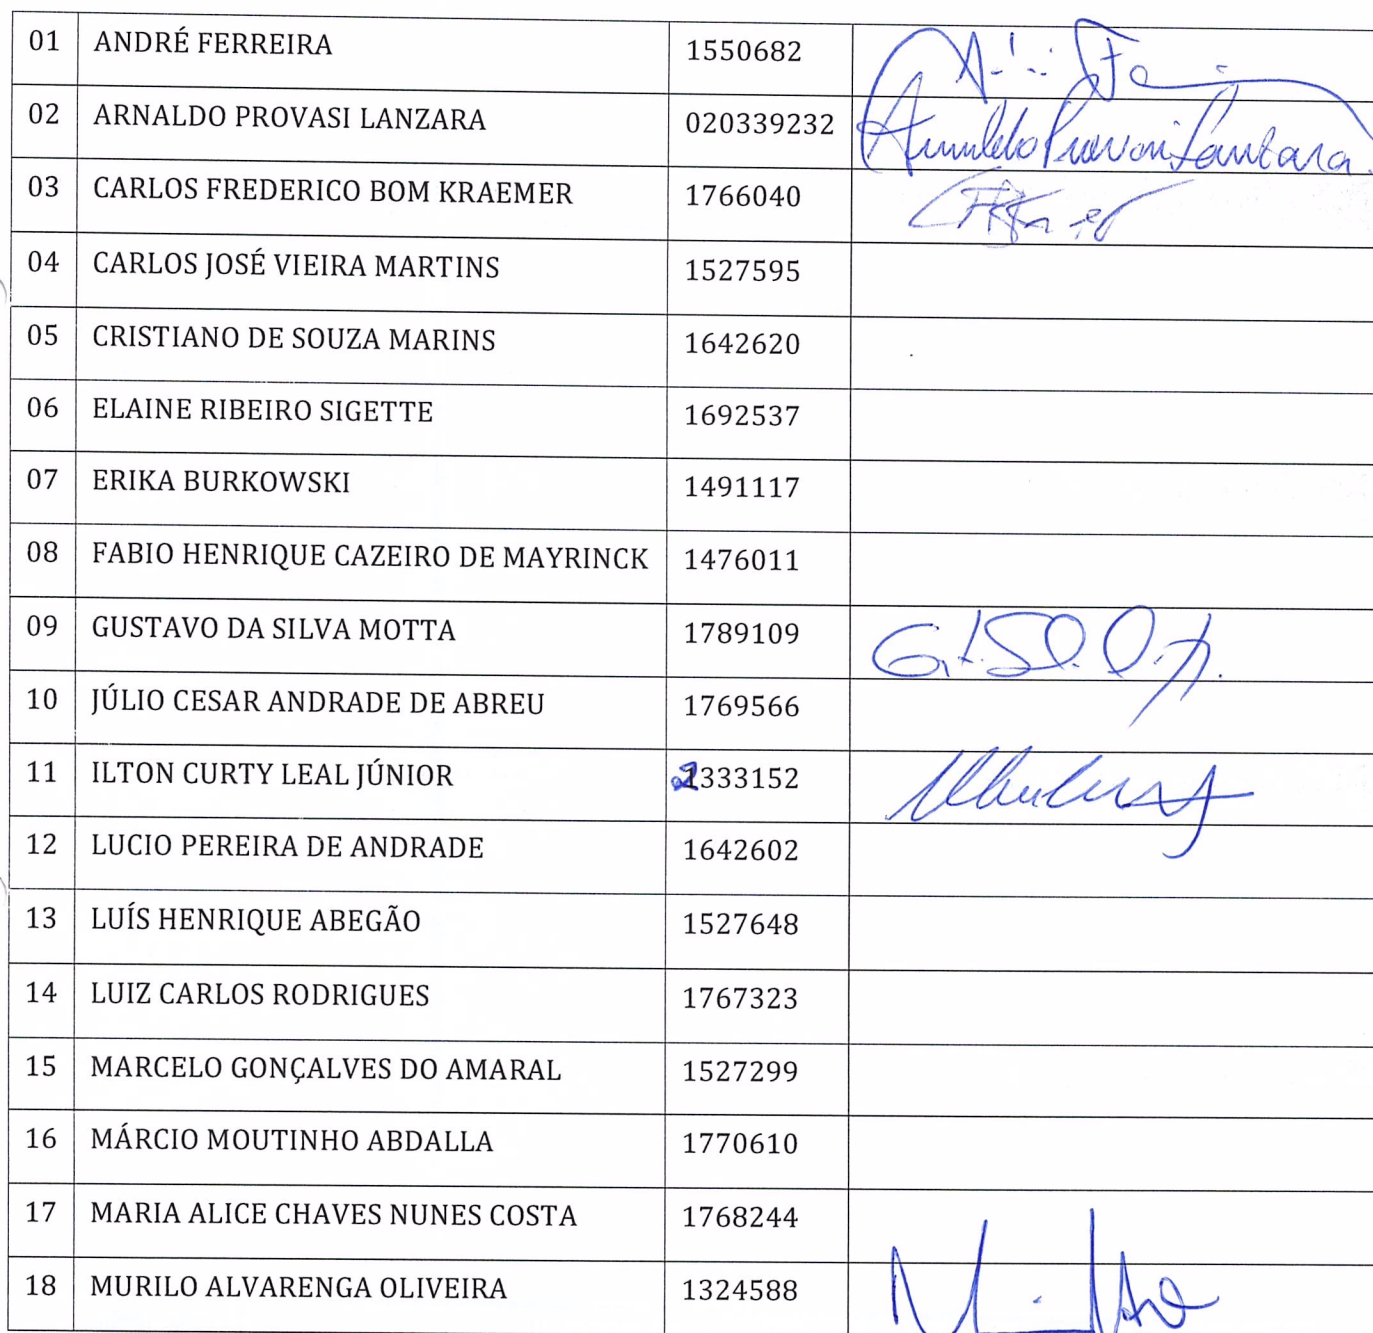 01 ANDRÉ FERREIRA 1550682
02 ARNALDO PROVASI LANZARA 020339232 Arnaldo Provasi Lanzara
03 CARLOS FREDERICO BOM KRAEMER 1766040
04 CARLOS JOSÉ VIEIRA MARTINS 1527595
05 CRISTIANO DE SOUZA MARINS 1642620
06 ELAINE RIBEIRO SIGETTE 1692537
07 ERIKA BURKOWSKI 1491117
08 FABIO HENRIQUE CAZEIRO DE MAYRINCK 1476011
09 GUSTAVO DA SILVA MOTTA 1789109
10 JÚLIO CESAR ANDRADE DE ABREU 1769566
11 ILTON CURTY LEAL JÚNIOR 2333152
12 LUCIO PEREIRA DE ANDRADE 1642602
13 LUÍS HENRIQUE ABEGÃO 1527648
14 LUIZ CARLOS RODRIGUES 1767323
15 MARCELO GONÇALVES DO AMARAL 1527299
16 MÁRCIO MOUTINHO ABDALLA 1770610
17 MARIA ALICE CHAVES NUNES COSTA 1768244
18 MURILO ALVARENGA OLIVEIRA 1324588